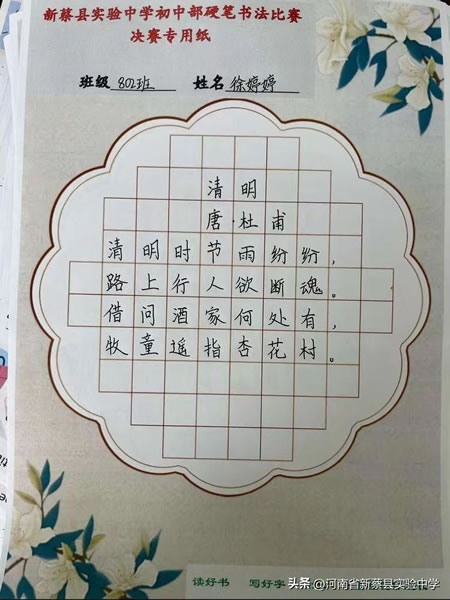 新蔡县实验中学初中部硬笔书法比赛
决赛专用纸
班级 802班 姓名 徐婷婷
清明
唐·杜甫
清明时节雨纷纷，
路上行人欲断魂。
借问酒家何处有，
牧童遥指杏花村。
读好书 写好字
头条 @河南省新蔡县实验中学